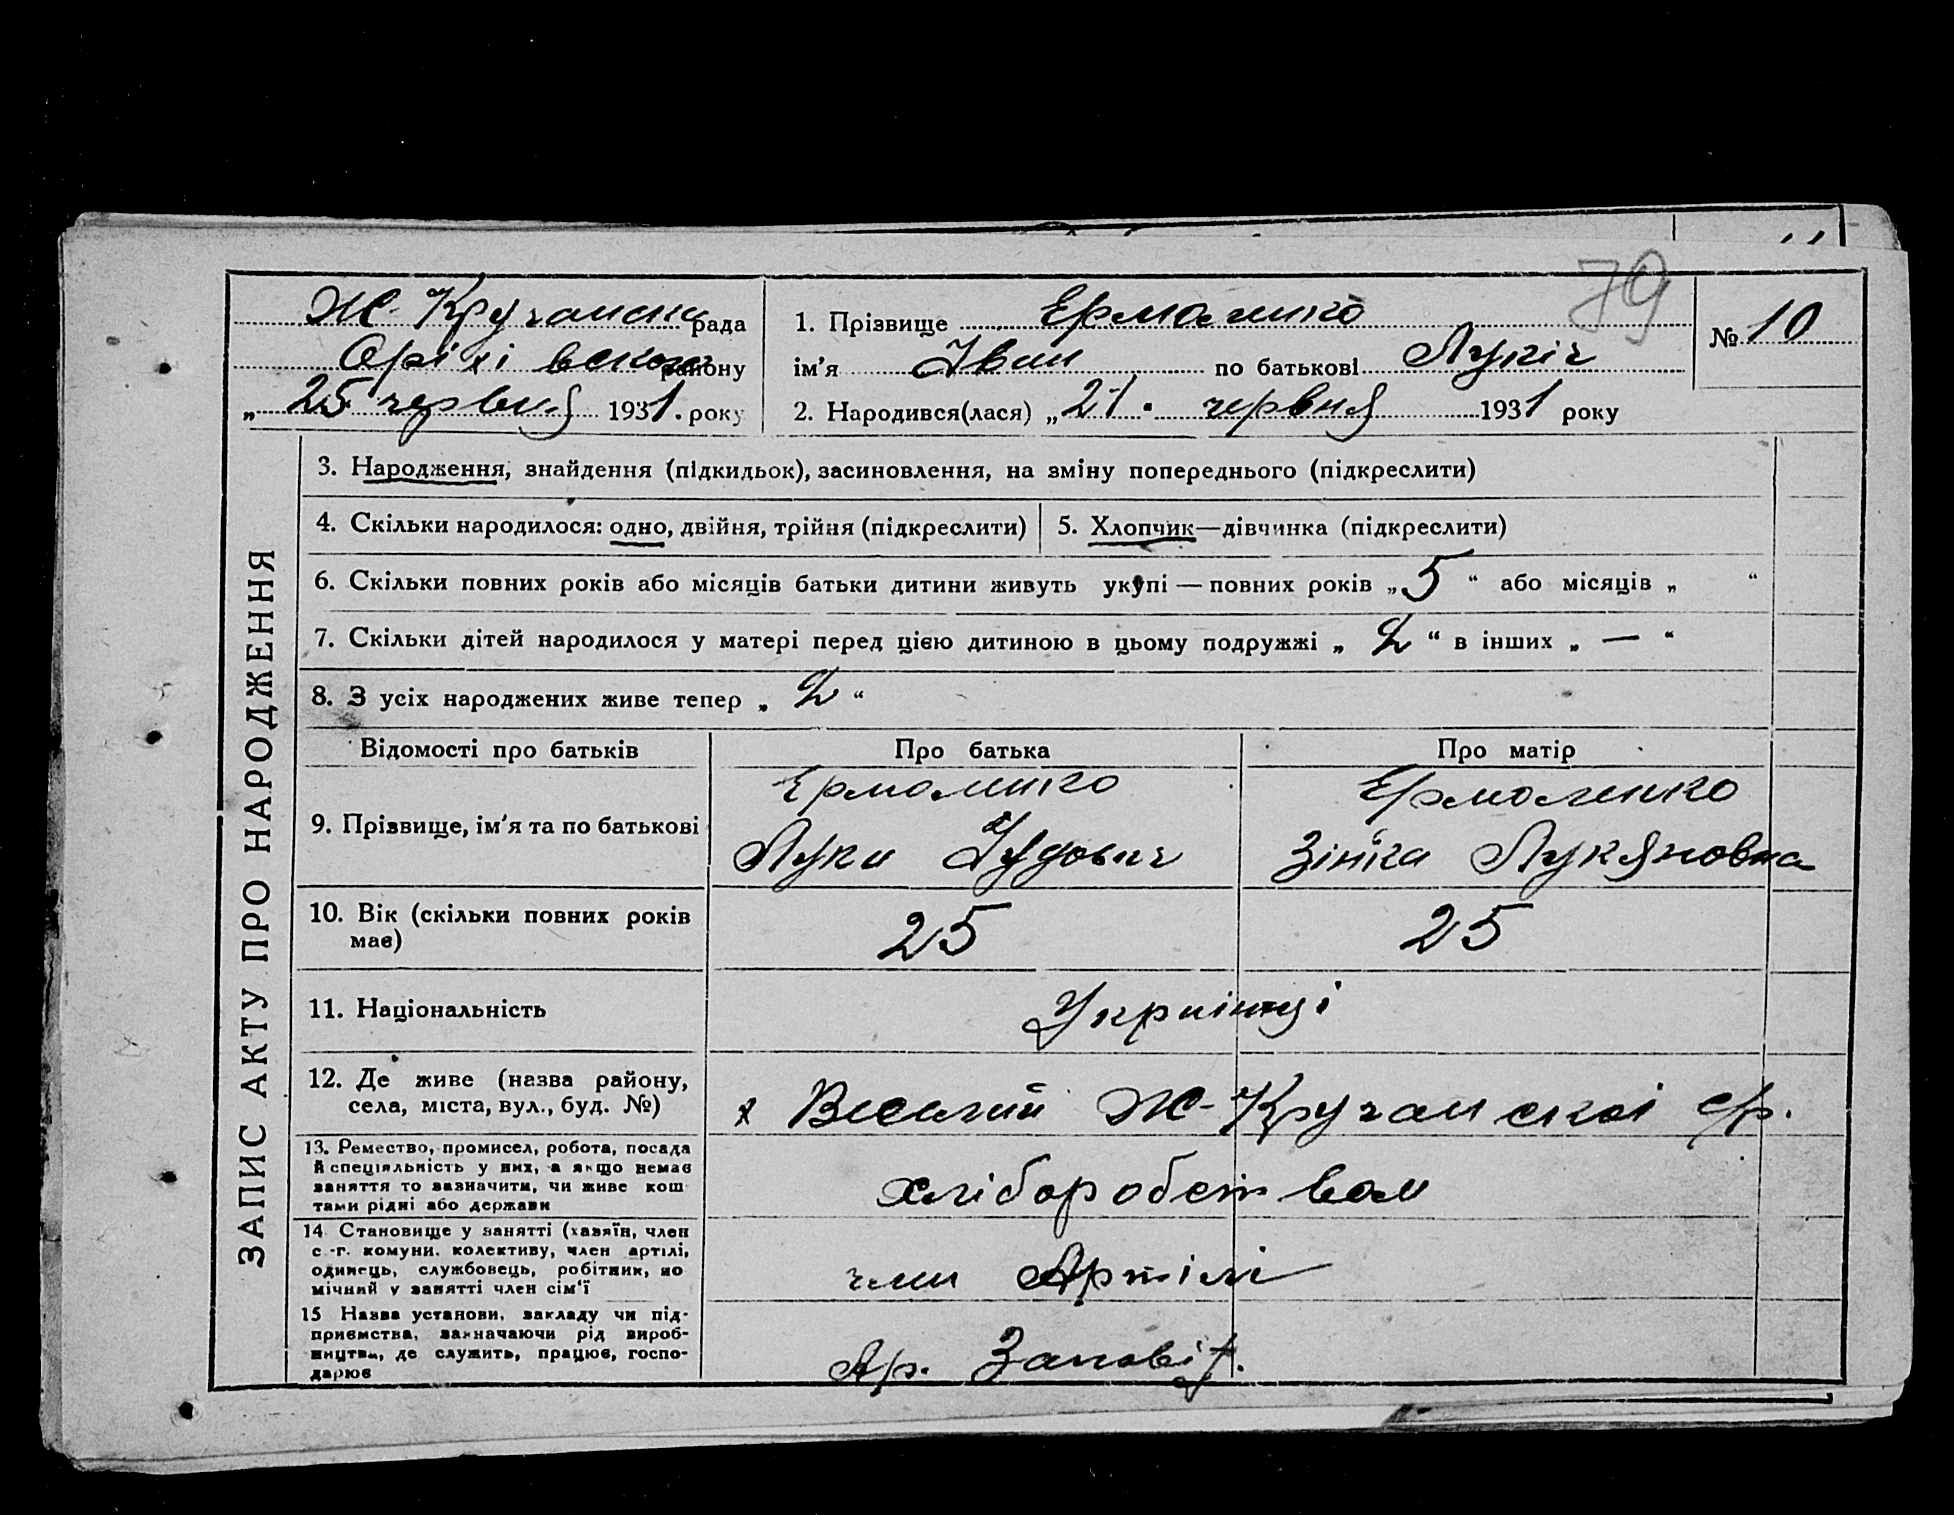 79
Ж-Кручанська рада
Оріхівського району
„ 25 червня 1931. року
1. Прізвище Ермаленко
ім'я Іван по батькові Лукіч
2. Народився(лася) „21. червня 1931 року
№ 10
ЗАПИС АКТУ ПРО НАРОДЖЕННЯ
3. Народження, знайдення (підкидьок), засиновлення, на зміну попереднього (підкреслити)
4. Скільки народилося: одно, двійня, трійня (підкреслити)
5. Хлопчик—дівчинка (підкреслити)
6. Скільки повних років або місяців батьки дитини живуть укупі — повних років „ 5 “ або місяців „ “
7. Скільки дітей народилося у матері перед цією дитиною в цьому подружжі „ 2 “ в інших „ — “
8. З усіх народжених живе тепер „ 2 “
Відомості про батьків
Про батька
Про матір
9. Прізвище, ім'я та по батькові
Ермаленко
Лука Іудович
Ермаленко
Зінька Лукяновна
10. Вік (скільки повних років
має)
25
25
11. Національність
Українці
12. Де живе (назва району,
села, міста, вул., буд. №)
х Веселий Ж-Кручанскої ср.
13. Ремество, промисел, робота, посада
й специяльність у них, а якщо немає
заняття то зазначити, чи живе кош
тами рідні або держави
хліборобством
14 Становище у занятті (хазяїн, член
с.-г. комуни, колективу, член артілі,
одинець, службовець, робітник, по
мічний у занятті член сім'ї
член Артілі
15 Назва установи, закладу чи під-
приємства, зазначаючи рід вироб-
ництва, де служить, працює, госпо-
дарює
Ар. Заповіт.